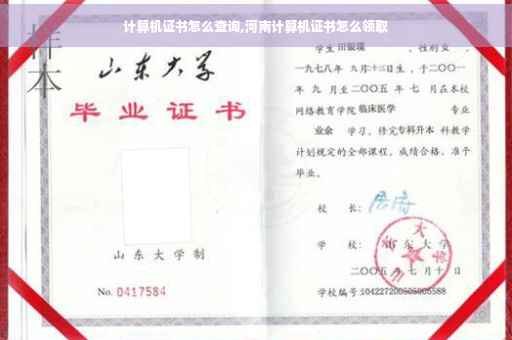 计算机证书怎么查询,河南计算机证书怎么领取
样本
山东大学
毕业证书
山东大学制
No. 0417584
学生 田银瑞 ,性别 女 ,
一九七八年 九月十三日生,于二〇〇一
年 九 月至二〇〇五 年 七 月在本校
网络教育学院 临床医学 专业
业余 学习,修完 专科升本 科教学
计划规定的全部课程,成绩合格,准予
毕业。
校 长:
学 校: 山东大学
二〇〇五 年 七 月 十 日
学校编号:104227200505005588